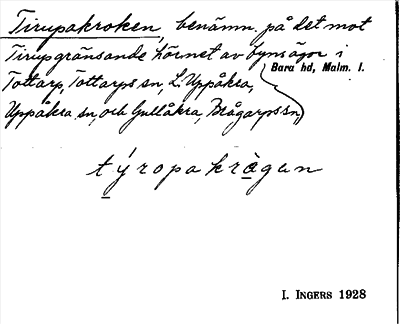 Tirupakroken, benämn. på det mot
Tirupgränsande hörnet av byns ägor i
Bara hd, Malm. l.
Tottarp, Tottarps sn, L. Uppåkra,
Uppåkra sn, och Gullåkra, Brågarps sn
týropakrågen
I. INGERS 1928